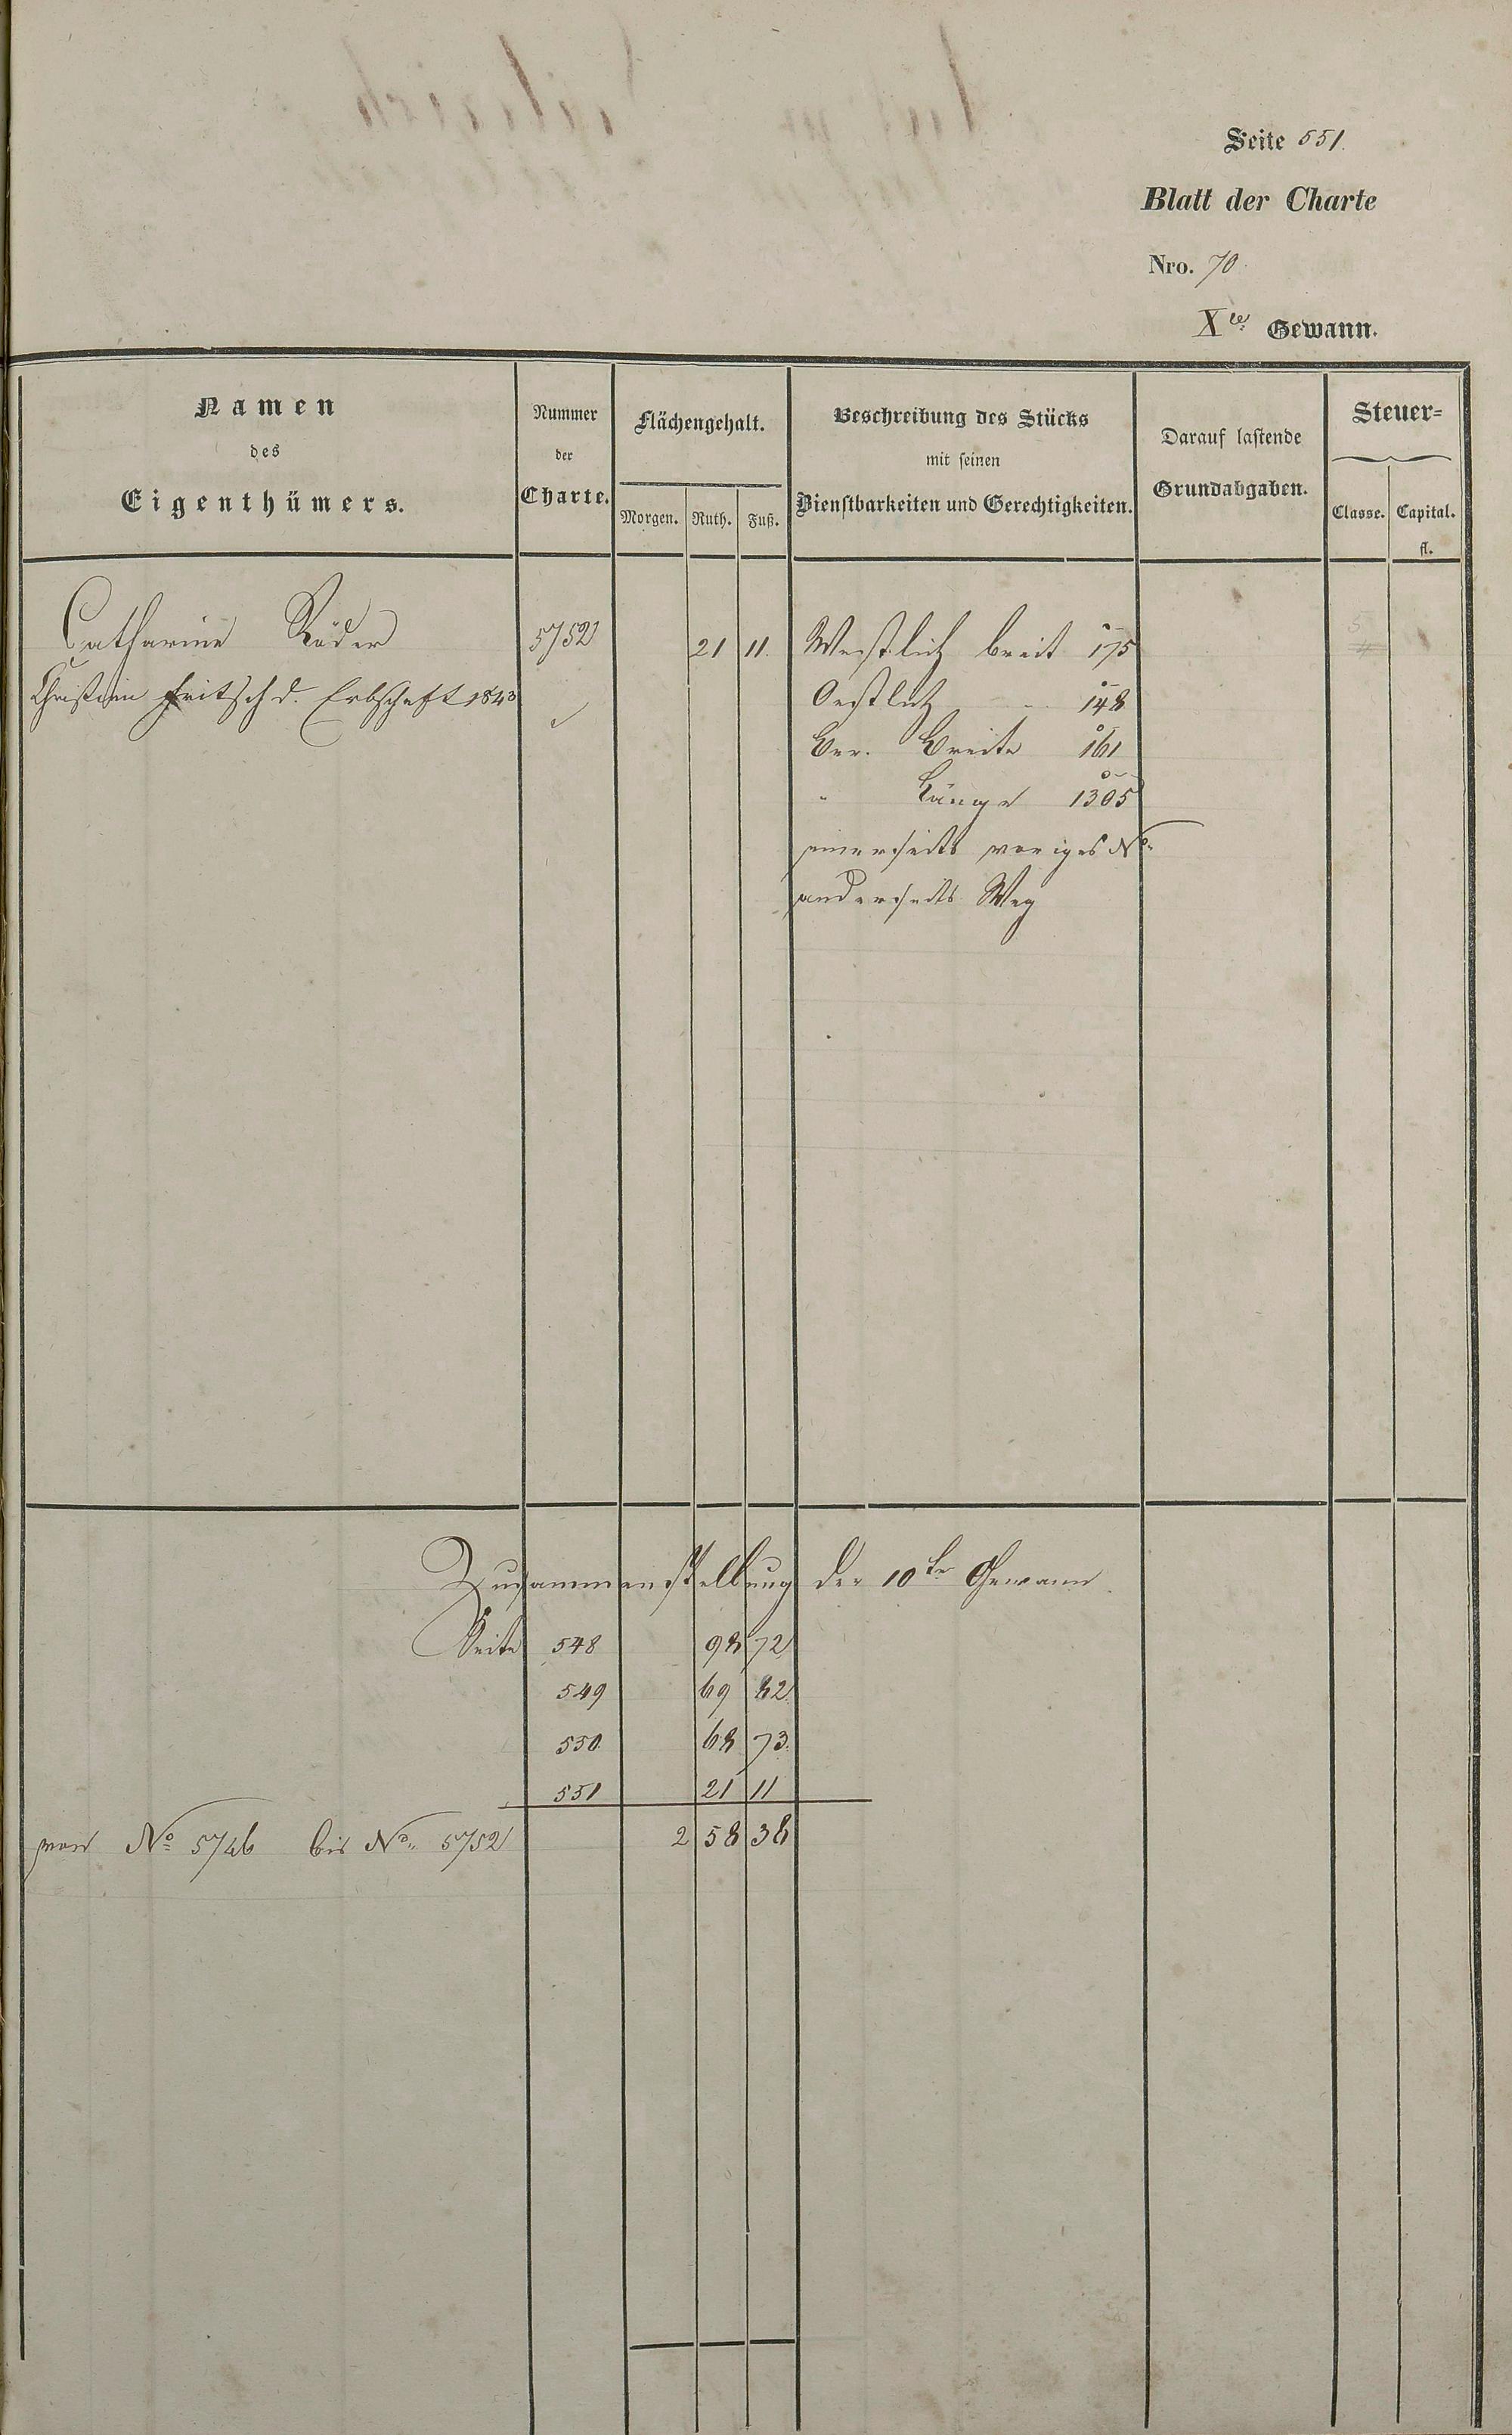 Seite 551.
Blatt der Charte
Nro. 70.
Xte Gewann.
Namen
des
Eigenthümers.
Nummer
der
Charte.
Flächengehalt.
Morgen. Ruth. Fuß.
Beschreibung des Stücks
mit seinen
Dienstbarkeiten und Gerechtigkeiten.
Darauf lastende
Grundabgaben.
Steuer-
Classe. Capital.
fl.
Catharine Röder 5752 21 11. Westlich breit 175
Christian Fritsch d. Erbschaft 1843 Oestlich " 148
Ver. Breite 161
" Länge 1305
einerseits voriges No.
anderseits Weg
5
Zusammenstellung der 10te Gewann.
Seite 548 98 72
549 69 82
550 68 73.
551 21 11
von No 5746 bis No. 5752 2 58 38